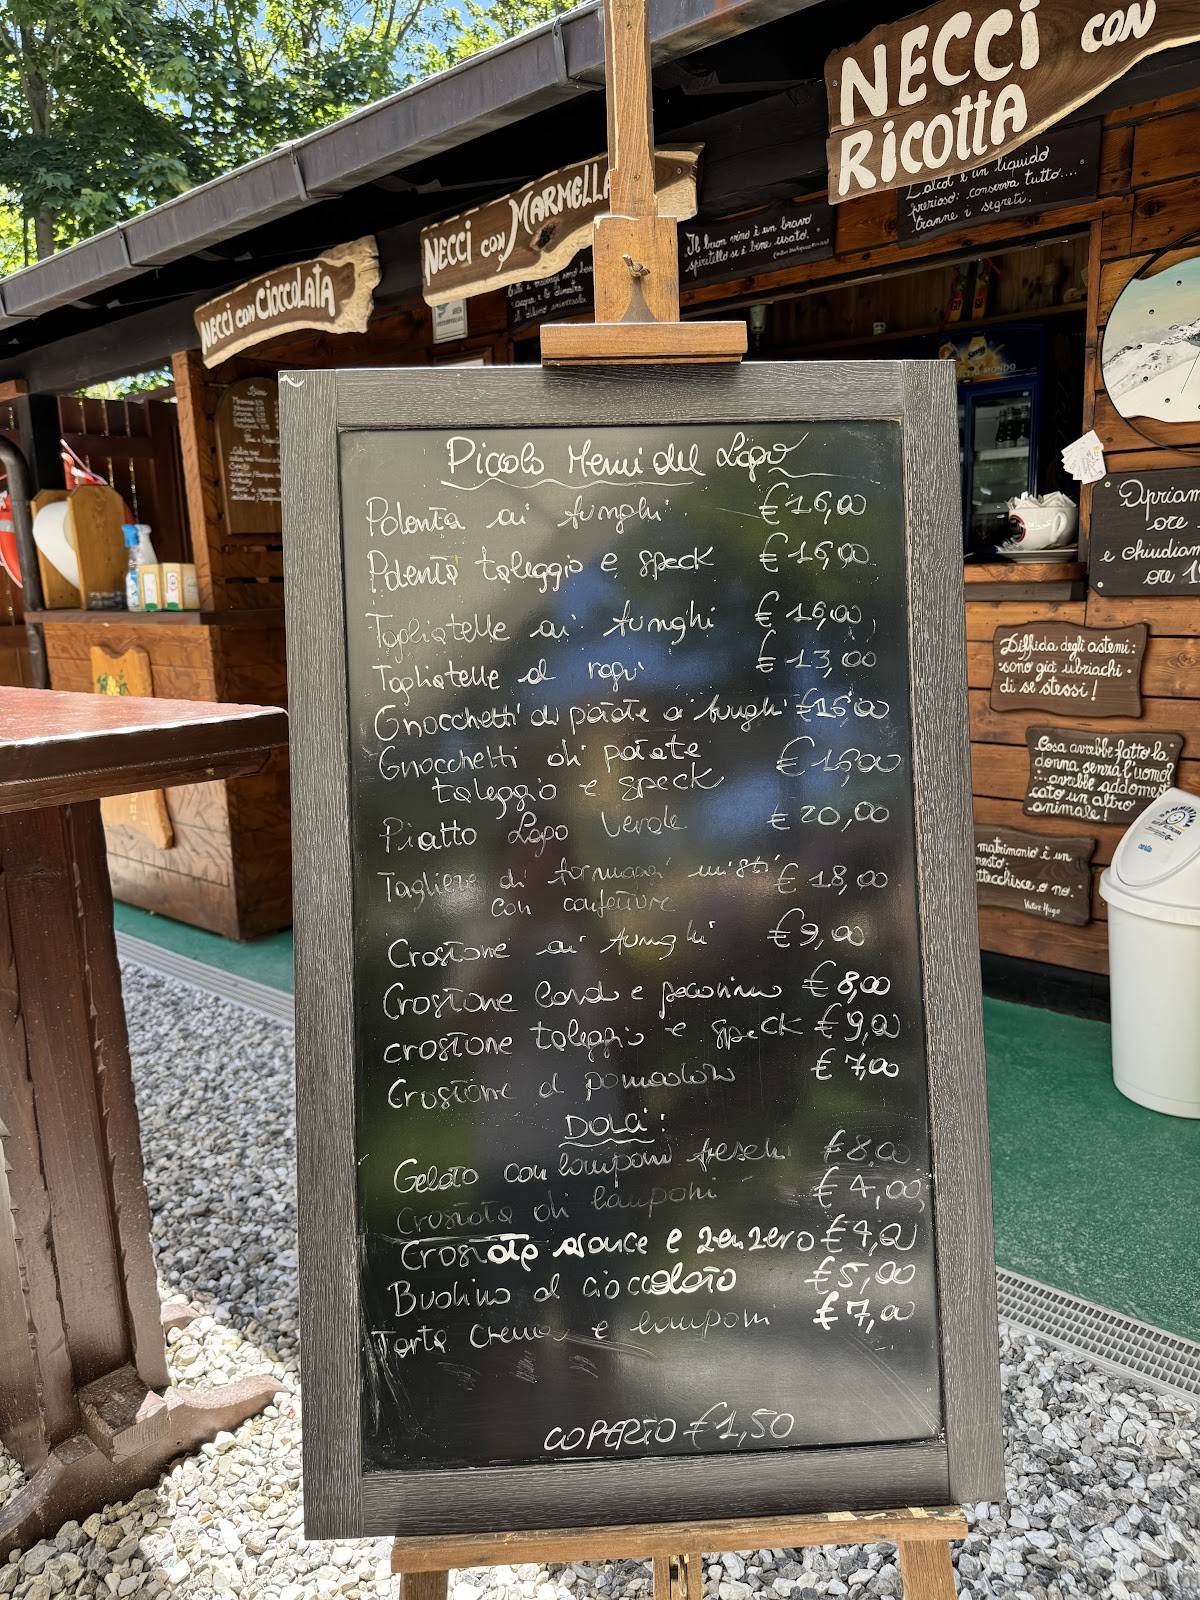 NECCI CON
RICOTTA
NECCI CON MARMELLA
NECCI CON CIOCCOLATA
L'alcol è un liquido
prezioso: conserva tutto....
tranne i segreti.
Il buon vino è un bravo
spiritello se è bene usato.
Piccolo Menu del Lapo
Polenta ai funghi € 16,00
Polenta taleggio e speck € 16,00
Tagliatelle ai funghi € 16,00
Tagliatelle al ragù € 13,00
Gnocchetti di patate ai funghi € 16,00
Gnocchetti di patate € 16,00
taleggio e speck
Piatto Lapo Verale € 20,00
Tagliere di formaggi misti € 18,00
con confetture
Crostone ai funghi € 9,00
Crostone lardo e pecorino € 8,00
crostone taleggio e speck € 9,00
Crostone al pomodoro € 7,00
DOLCI:
Gelato con lamponi freschi € 8,00
Crostata di lamponi € 4,00
Crostata arance e zenzero € 4,00
Budino al cioccolato € 5,00
Torta Crema e lamponi € 7,00
COPERTO € 1,50
Apriam
ore
e chiudiam
ore 1
Diffida degli astemi:
sono già ubriachi
di se stessi!
Cosa avrebbe fatto la
donna senza l'uomo?
...avrebbe addomesti
cato un altro
animale!
matrimonio è un
nesto:
ttecchisce o no.
Victor Hugo